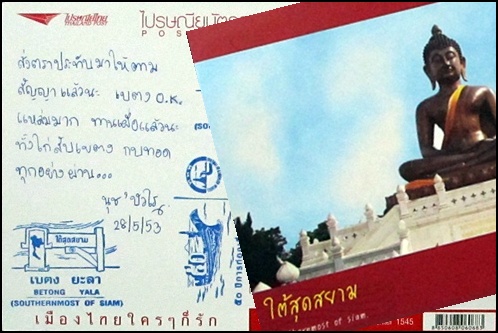 ไปรษณีย์ไทย
THAILAND POST
ไปรษณียบัตร
POS
ส่งตราประทับมาให้ตาม
สัญญาแล้วนะ เบตง O.K.
แหล่มมาก ทานเผื่อแล้วนะ
ทั้งไก่สับเบตง กบทอด
ทุกอย่างผ่าน...
28/5/53
ใต้สุดสยาม
เบตง ยะลา
BETONG YALA
(SOUTHERNMOST OF SIAM)
เมืองไทยใครๆก็รัก
(SOU
ใต้สุดสยาม
ernmost of Siam
1545